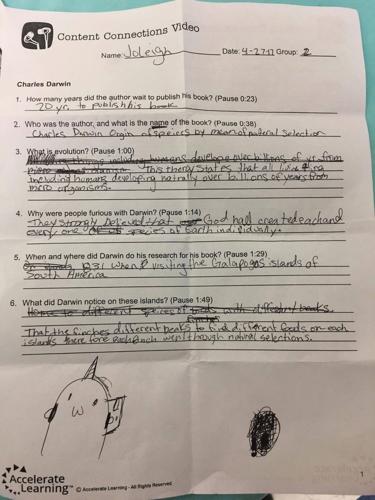 Content Connections Video
Name: Joleigh Date: 4-27-17 Group: 2
Charles Darwin
1. How many years did the author wait to publish his book? (Pause 0:23)
20 yr. to publish his book
2. Who was the author, and what is the name of the book? (Pause 0:38)
Charles Darwin Orgin of speices by mean of natural selection
3. What is evolution? (Pause 1:00)
things including humans develope over billions of yr. from
micro This theory states that all living
including humans developing natrally over billions of years from
micro organisms.
4. Why were people furious with Darwin? (Pause 1:14)
They strongly believed that God had created each and
every one of speices of Earth individualy.
5. When and where did Darwin do his research for his book? (Pause 1:29)
1831 when visiting the Galapogos islands of
South America
6. What did Darwin notice on these islands? (Pause 1:49)
to different speices of with different beaks.
finches
That the finches different beaks to find different foods on each
islands there fore each finch went through natural selections.
Accelerate
Learning™ © Accelerate Learning - All Rights Reserved
1